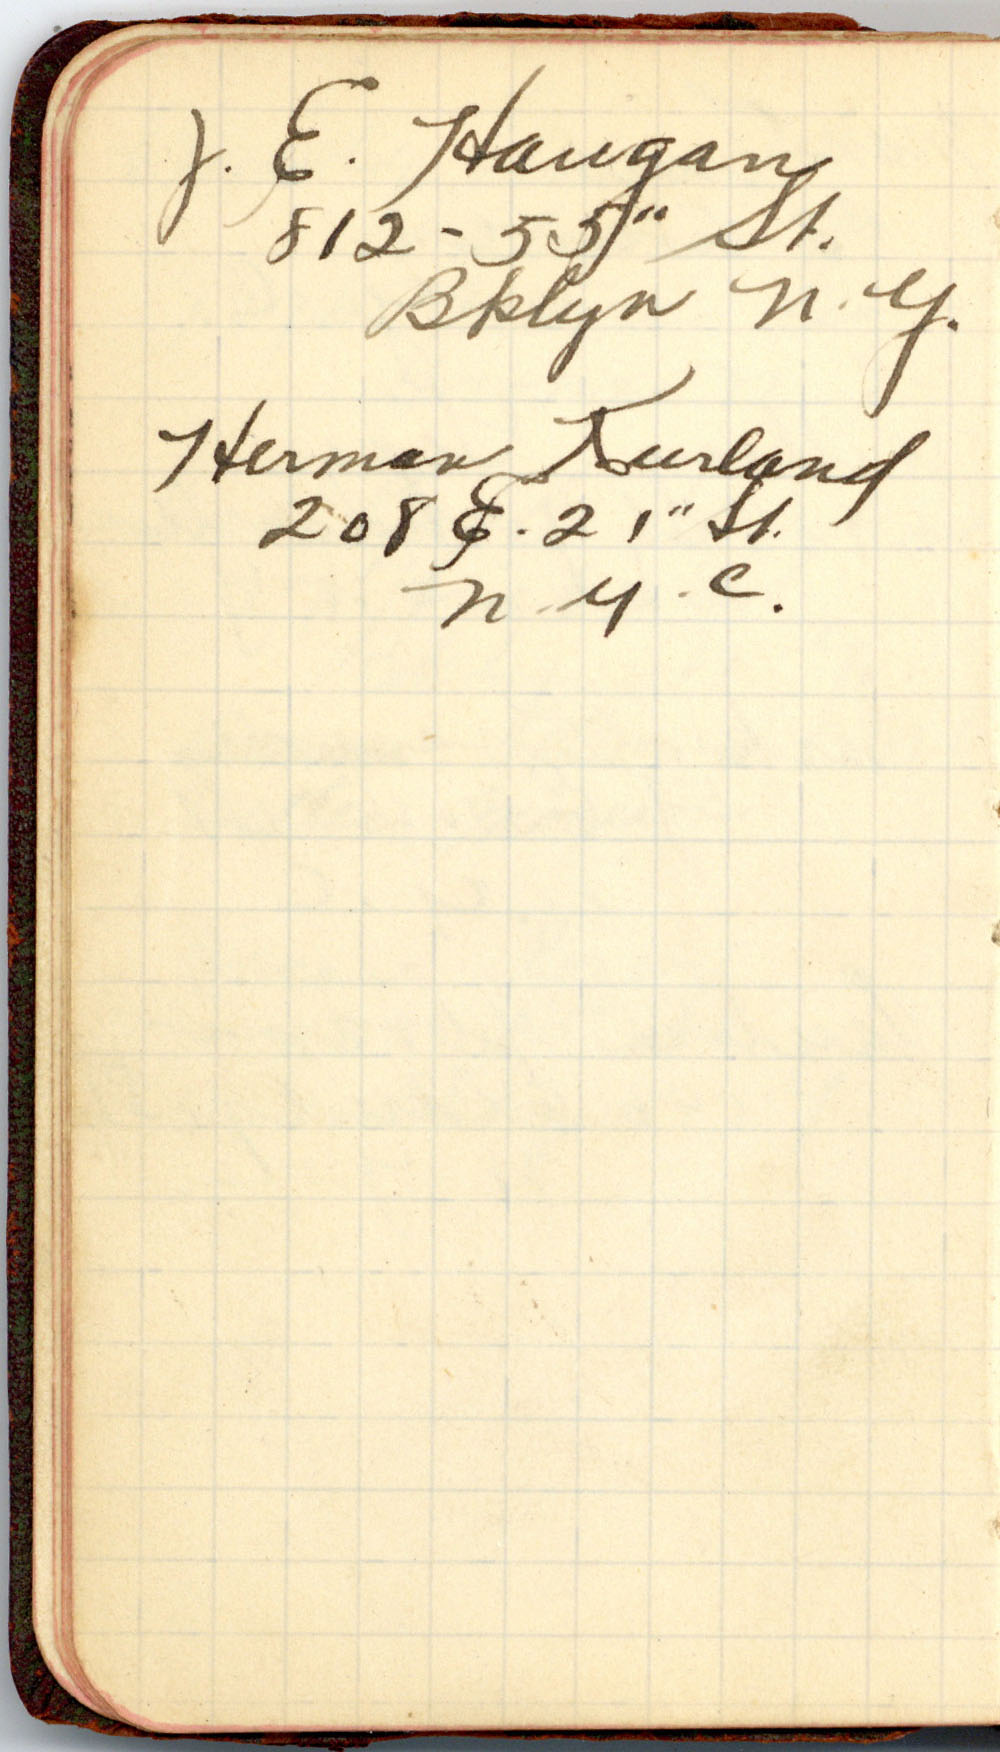 J. E. Haugan
812 - 55" St.
Bklyn N. Y.
Herman Kurland
208 E. 21" St.
N. Y. C.